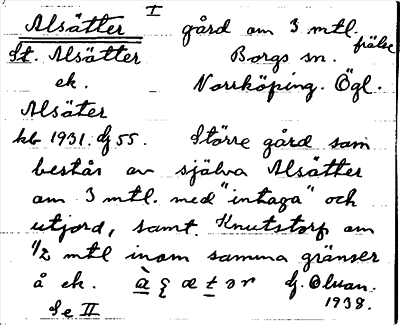 I
Alsätter gård om 3 mtl. frälse
St. Alsätter Borgs sn.
ek. Norrköping. Ögl.
Alsäter
kb 1931. dj 55. Större gård som
består av själva Alsätter
om 3 mtl. med "intaga" och
utjord, samt. Knutstorp om
1/2 mtl inom samma gränser
å ek.
1938.
Se II